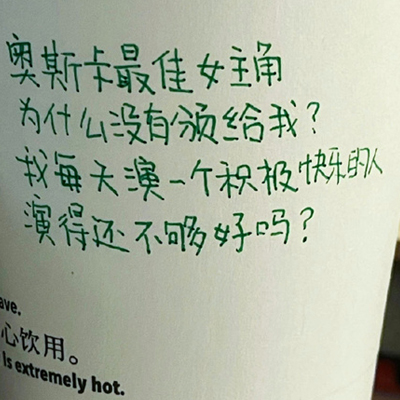 奥斯卡最佳女主角
为什么没有颁给我？
我每天演一个积极快乐的人
演得还不够好吗？
ave.
心饮用。
Is extremely hot.